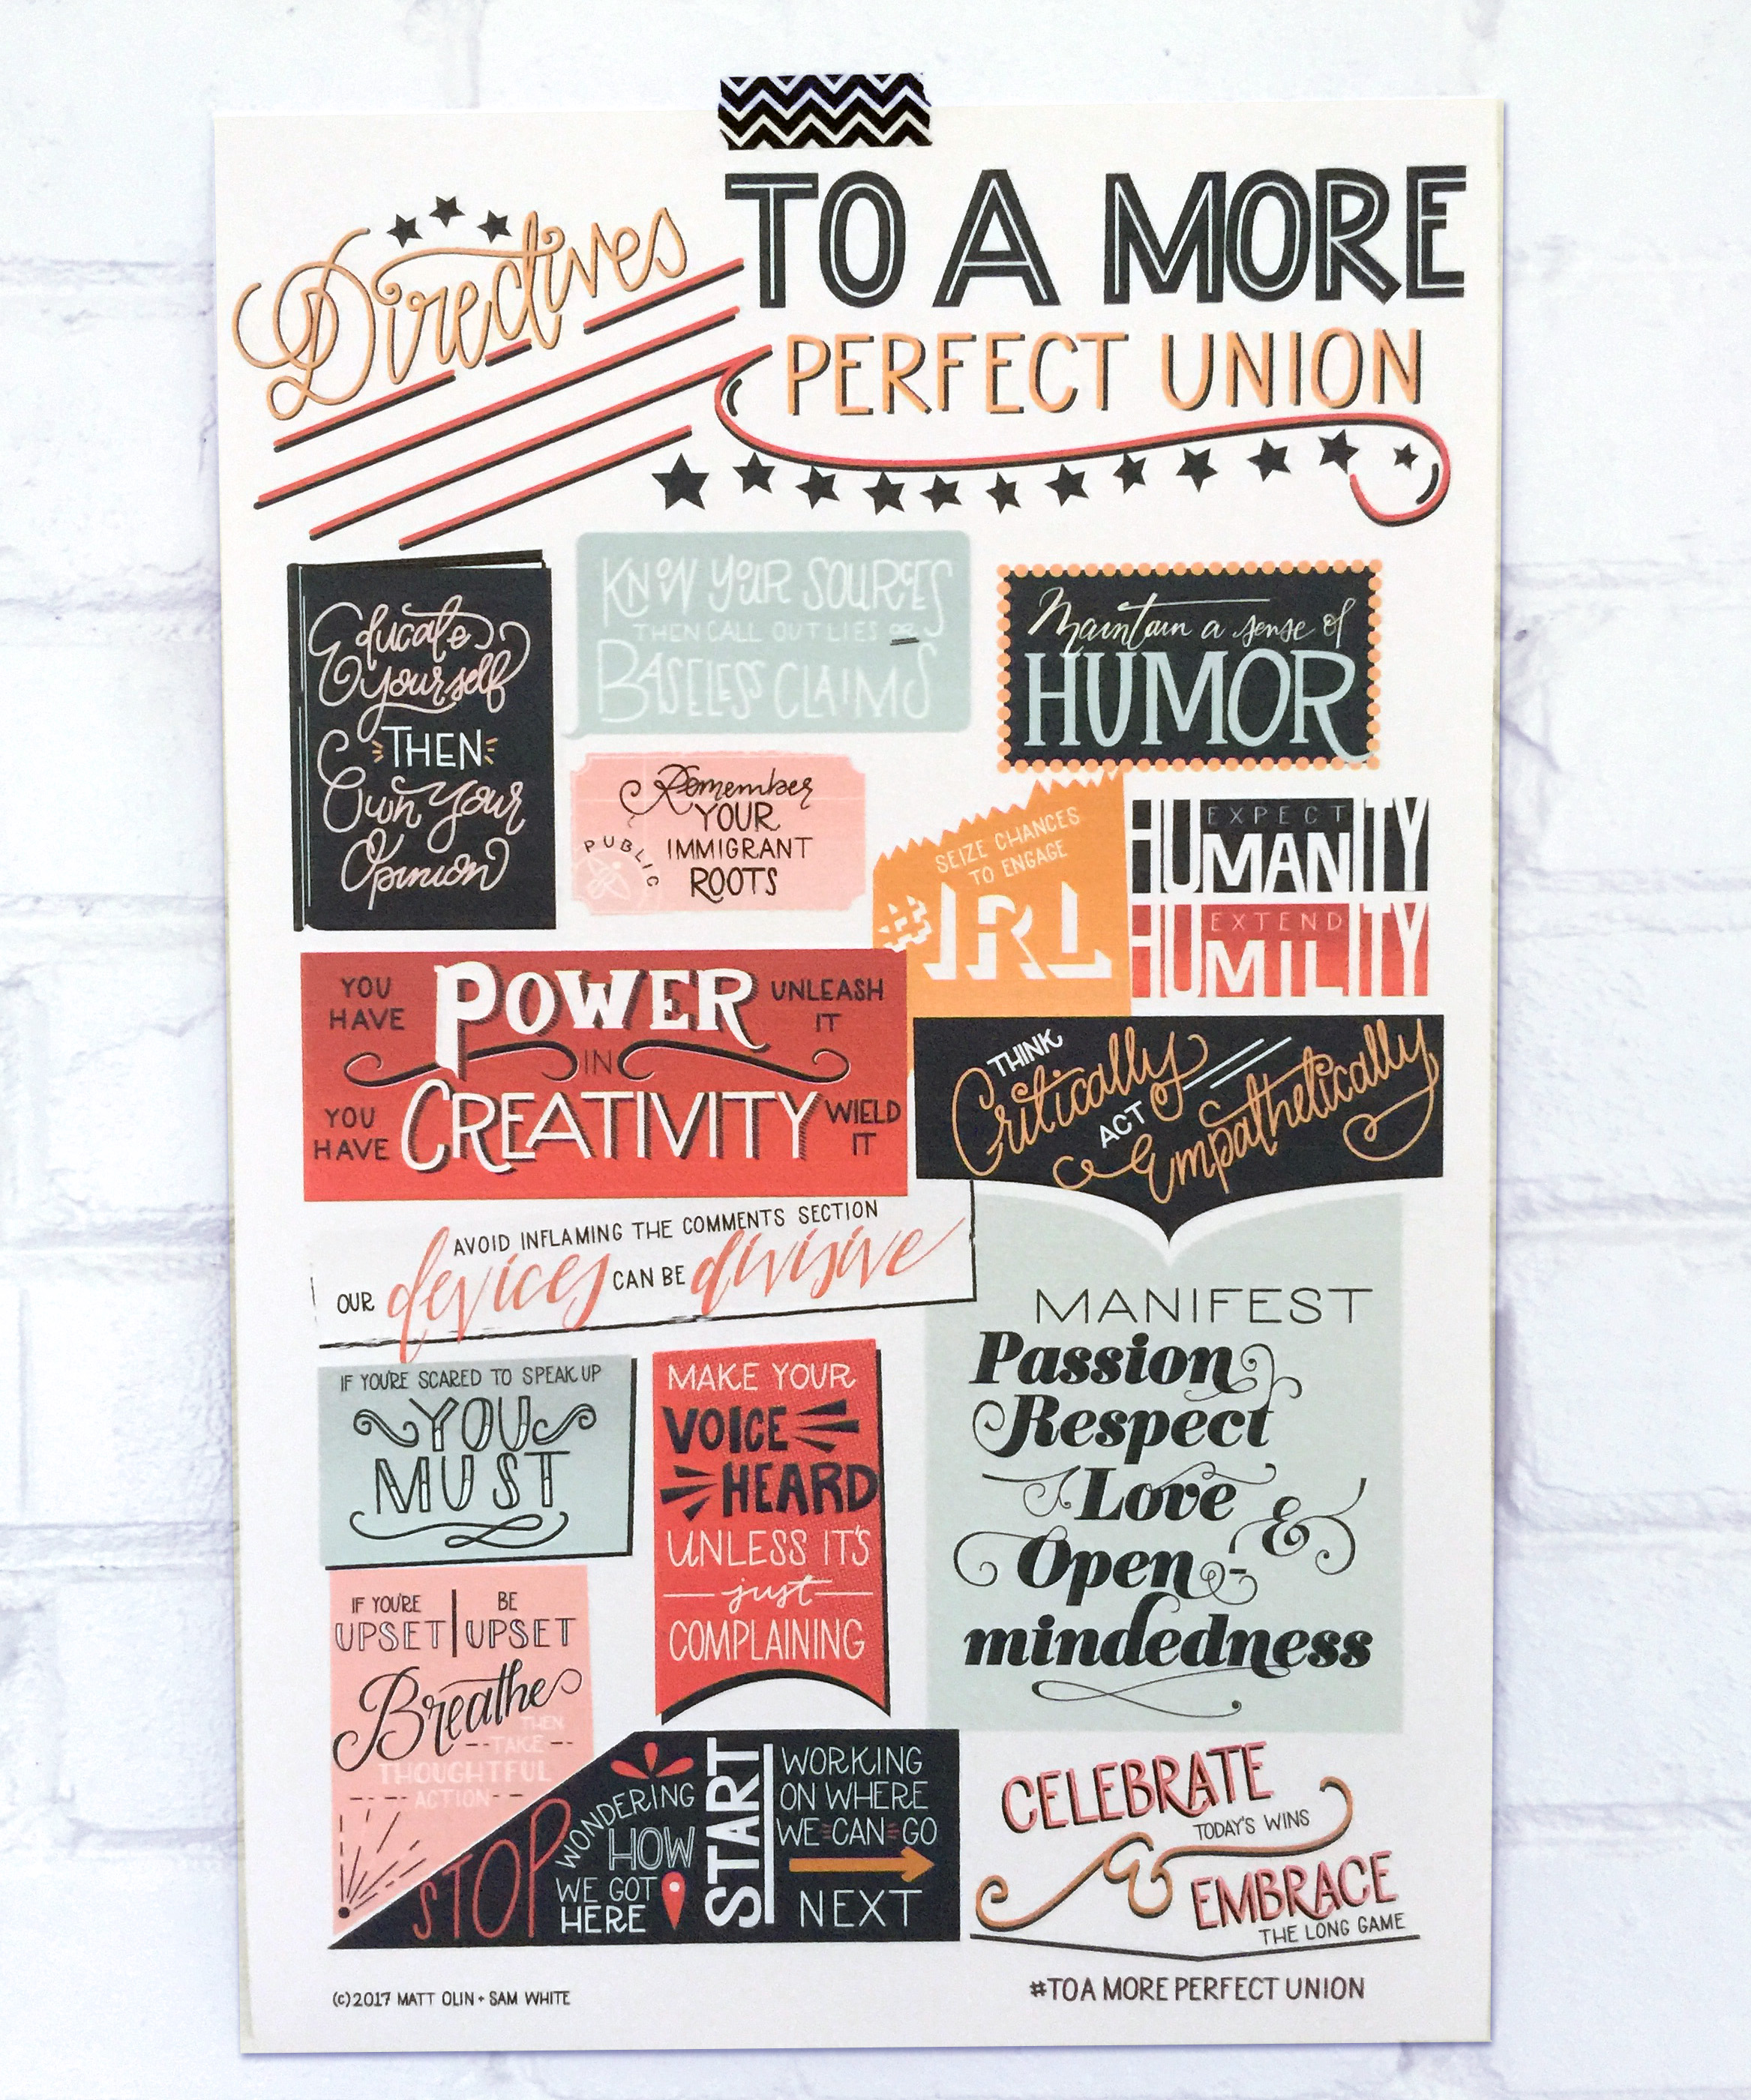 Directives
TO A MORE
PERFECT UNION
Educate
Yourself
THEN
Own your
Opinion
KNOW YOUR SOURCES
THEN CALL OUT LIES OR
BASELESS CLAIMS
Maintain a sense of
HUMOR
Remember
YOUR
IMMIGRANT
ROOTS
PUBLIC
SEIZE CHANCES
TO ENGAGE
#IRL
EXPECT
HUMANITY
EXTEND
HUMILITY
YOU HAVE POWER UNLEASH IT
IN
YOU HAVE CREATIVITY WIELD IT
THINK
Critically
ACT
Empathetically
AVOID INFLAMING THE COMMENTS SECTION
OUR devices CAN BE divisive
MANIFEST
Passion
Respect
Love
&
Open-
mindedness
IF YOU'RE SCARED TO SPEAK UP
YOU
MUST
MAKE YOUR
VOICE
HEARD
UNLESS IT'S
just
COMPLAINING
IF YOU'RE
UPSET
BE
UPSET
Breathe
THEN
TAKE
THOUGHTFUL
ACTION
STOP
WONDERING
HOW
WE GOT
HERE
START
WORKING
ON WHERE
WE CAN GO
NEXT
CELEBRATE
TODAY'S WINS
&
EMBRACE
THE LONG GAME
(c)2017 MATT OLIN + SAM WHITE
#TO A MORE PERFECT UNION